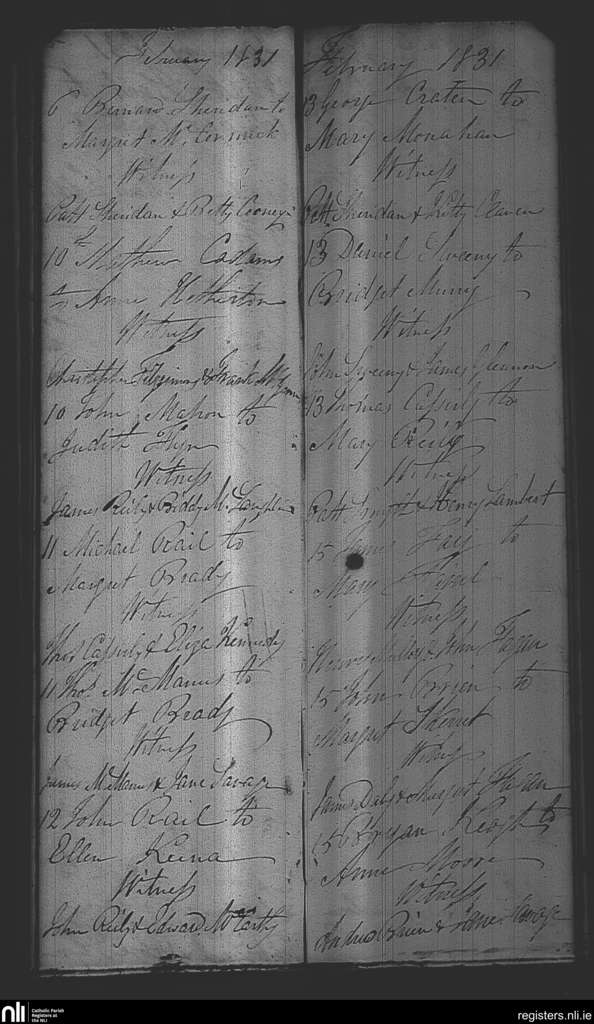 February 1831
6 Bernard Sheridan to
Margret McCormick
Witness
Patt Sheridan & Betty Cooney
10th Mathew Cadams
to Anne Hetherton
Witness
Christopher Fitzsimons & Frank
10 John Mahon to
Judith Flyn
Witness
James Reily & Biddy McLaughlin
11 Michael Rail to
Margret Brady
Witness
Thos Cassidy & Eliza Kennedy
11 Thos McManus to
Bridget Brady
Witness
James McManus & Jane Savage
12 John Rail to
Ellen Keena
Witness
John Reily & Edward McCarthy
February 1831
13 George Craten to
Mary Monahan
Witness
Patt Sheridan & Kitty Claven
13 Daniel Sweeny to
Bridget Murry
Witness
John Sweeny & James Gleennon
13 Thomas Cassidy to
Mary Reily
Witness
Patt Smyth & Henry Lambert
15 James Fay to
Mary
Witness
Henry Malloy & John Fagan
15 John Brien to
Margret Skerret
Witness
James Daly & Margret Fagan
15 Bryan Keogh to
Anne Moore
Witness
Andrew Brien & Jane Savage
nli
Catholic Parish
Registers at
the NLI
registers.nli.ie